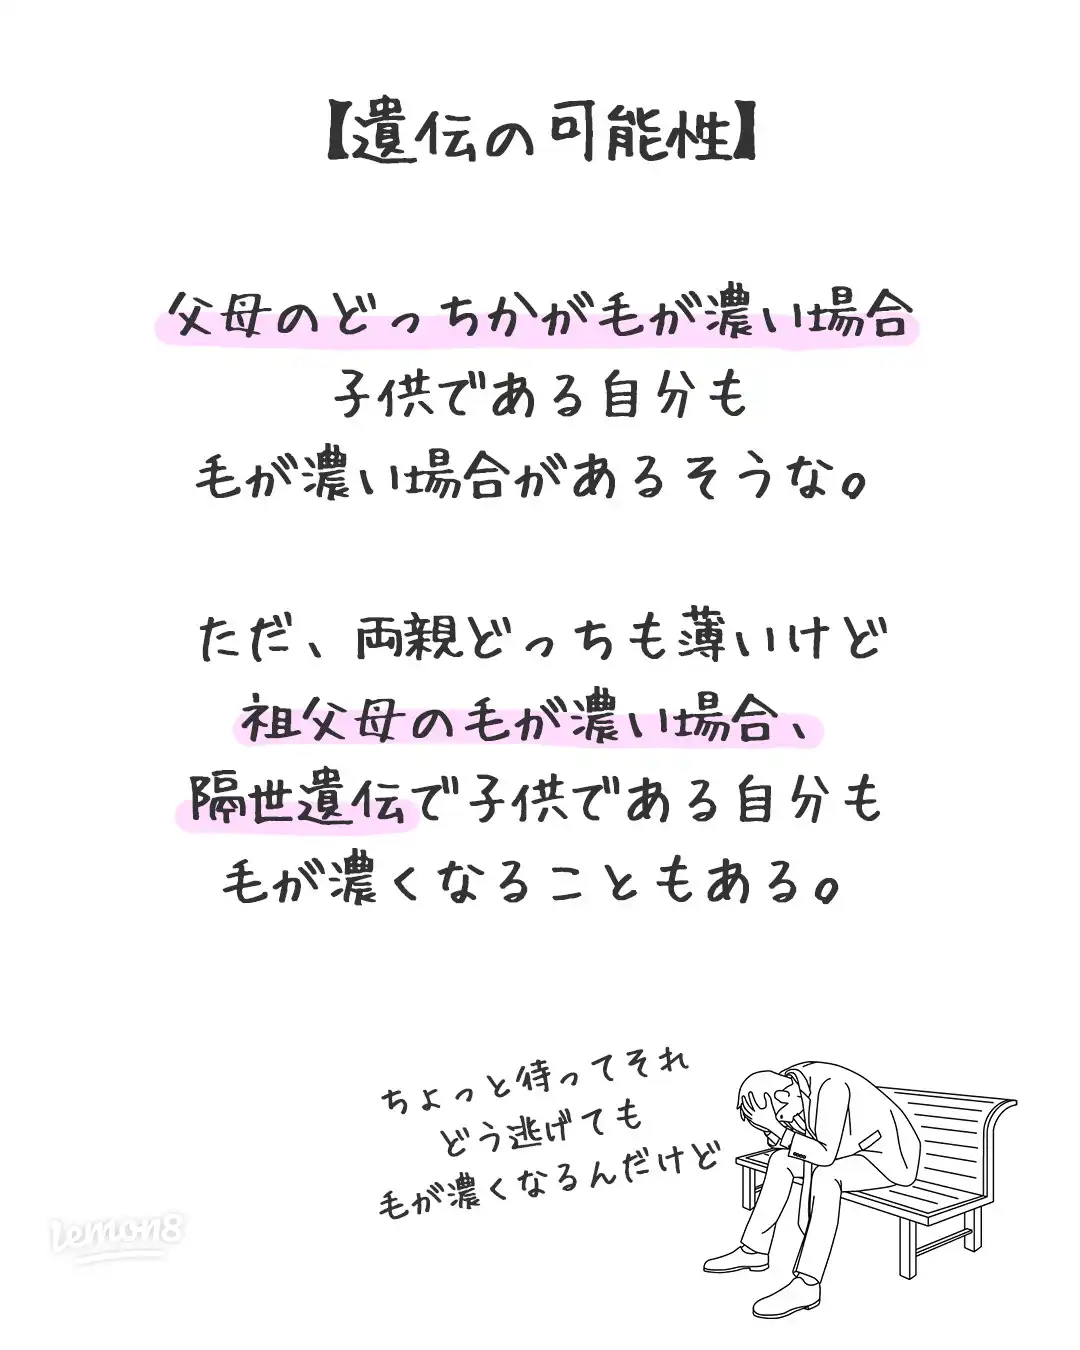 【遺伝の可能性】
父母のどっちかが毛が濃い場合
子供である自分も
毛が濃い場合があるそうな。
ただ、両親どっちも薄いけど
祖父母の毛が濃い場合、
隔世遺伝で子供である自分も
毛が濃くなることもある。
ちょっと待ってそれ
どう逃げても
毛が濃くなるんだけど
lemon8